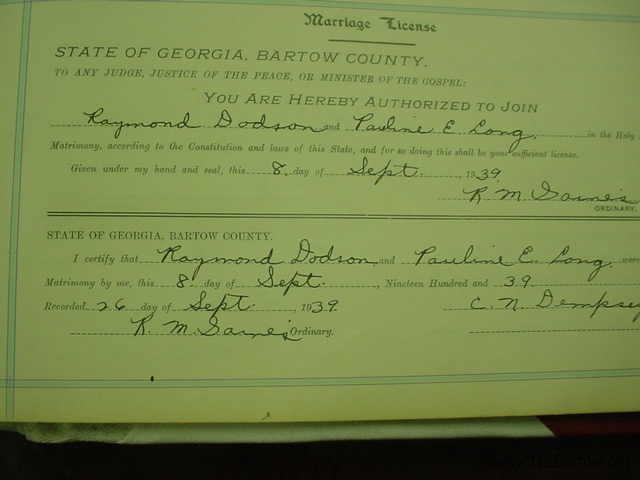 Marriage License
STATE OF GEORGIA, BARTOW COUNTY.
TO ANY JUDGE, JUSTICE OF THE PEACE, OR MINISTER OF THE GOSPEL:
YOU ARE HEREBY AUTHORIZED TO JOIN
Raymond Dodson and Pauline E. Long, in the Holy
Matrimony, according to the Constitution and laws of this State, and for so doing this shall be your sufficient license.
Given under my hand and seal, this 8. day of Sept., 1939.
R. M. Gaines
ORDINARY.
STATE OF GEORGIA, BARTOW COUNTY.
I certify that Raymond Dodson and Pauline E. Long. were
Matrimony by me, this 8. day of Sept., Nineteen Hundred and 39.
Recorded 26 day of Sept., 1939. C. N. Dempsey
R. M. Gaines Ordinary.
©www.GaBartow.org